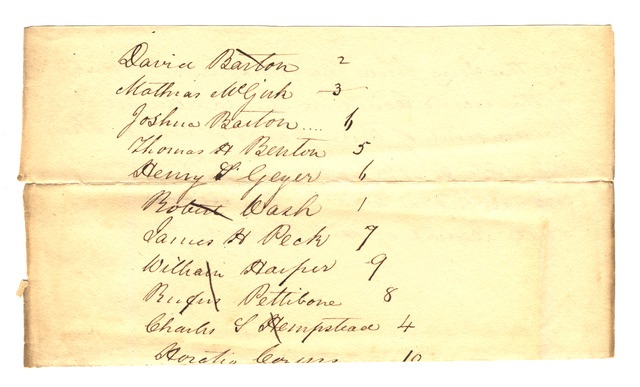 David Barton 2
Mathias McGirk 3
Joshua Barton .... 6
Thomas H Benton 5
Henry S Geyer 6
Robert Wash 1
James H Peck 7
William Harper 9
Rufus Pettibone 8
Charles S Hempstead 4
Horatio 10